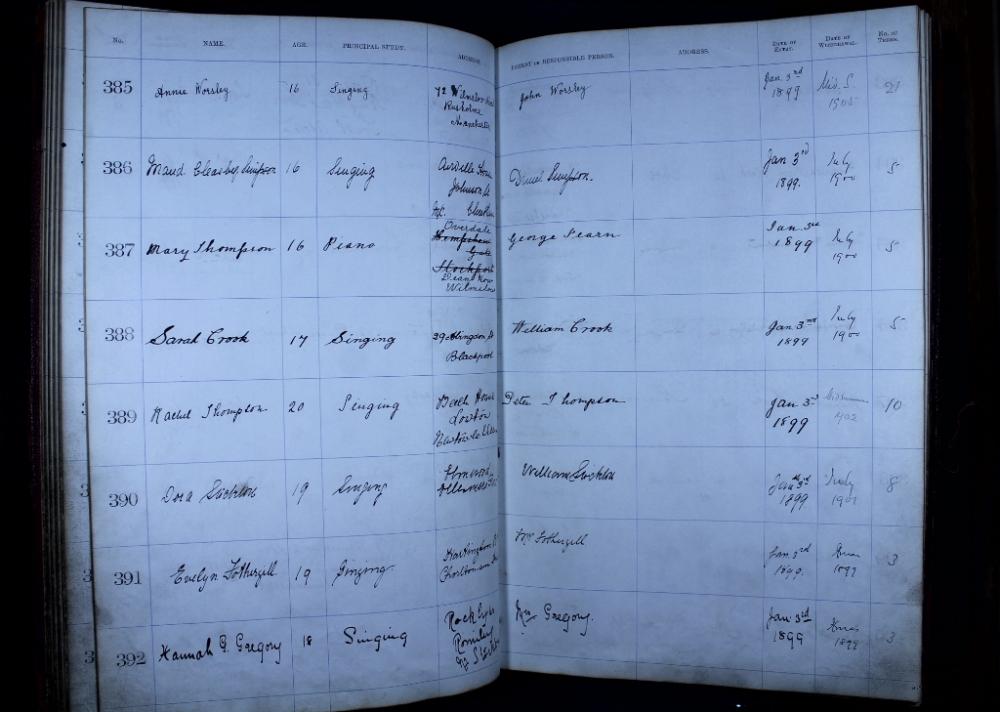 No. NAME. AGE. PRINCIPAL STUDY. ADDRESS. PARENT OR RESPONSIBLE PERSON. ADDRESS. DATE OF ENTRY. DATE OF WITHDRAWAL. No. OF TERMS.
385 Annie Worsley 16 Singing 72 Wilmslow Road John Worsley Jan. 3rd Mid. S. 21
Rusholme 1899 1905
Manchester
386 Maud Cleasby Simpson 16 Singing Daniel Simpson. Jan 3rd July 5
Johnson St 1899. 1900
387 Mary Thompson 16 Piano Overdale George Fearn Jan. 3rd July 5
Gate 1899 1900
Stockport
Dean Row
Wilmslow
388 Sarah Crook 17 Singing 29 Abingdon St William Crook Jan 3rd July 5
Blackpool 1899 1900
389 Rachel Thompson 20 Singing Beech House Peter Thompson Jan 3rd Midsummer 10
Lowton 1899 1902
Newton le Willows
390 Dora 19 Singing William Jan 3rd July 8
1899
391 Evelyn Fothergill 19 Singing Hartington Rd Wm Fothergill Jan. 3rd Xmas 3
Chorlton 1899. 1899
392 Hannah G. Gregory 18 Singing Rock Mrs Gregory. Jan. 3rd Xmas 3
Romiley 1899 1899
Nr Stockport